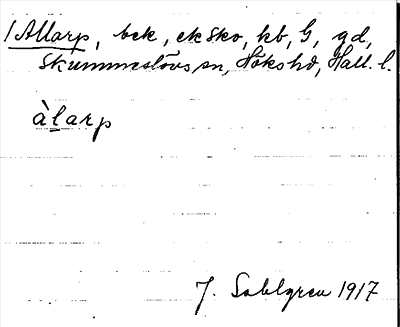 1 Allarp, bek, ek sko, kb, G, gd,
Skummeslövs sn, Höks hd, Hall. l.
àlarp
J. Sahlgren 1917